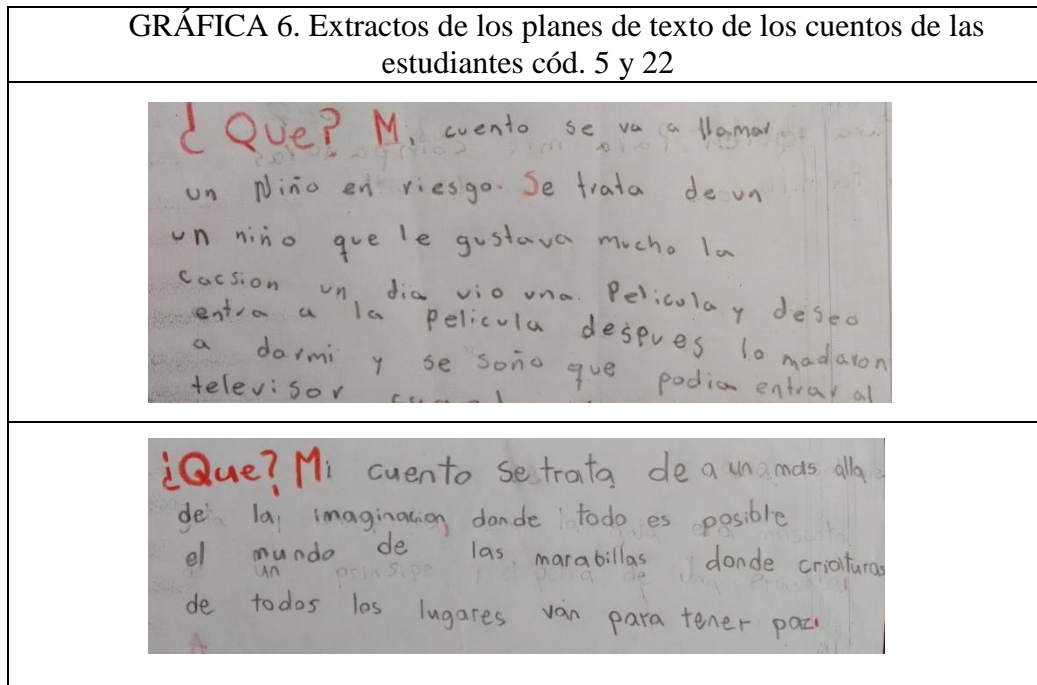 GRÁFICA 6. Extractos de los planes de texto de los cuentos de las
estudiantes cód. 5 y 22
¿Que? Mi cuento se va a llamar
un Niño en riesgo. Se trata de un
un niño que le gustava mucho la
cacsion un dia vio una Pelicula y deseo
entra a la pelicula despues lo madaron
a dormi y se soño que podia entrar al
televisor
¿Que? Mi cuento se trata de a una mas alla
de la imaginacion, donde todo es posible
el mundo de las marabillas donde criaturas
de todos los lugares ván para tener paz.